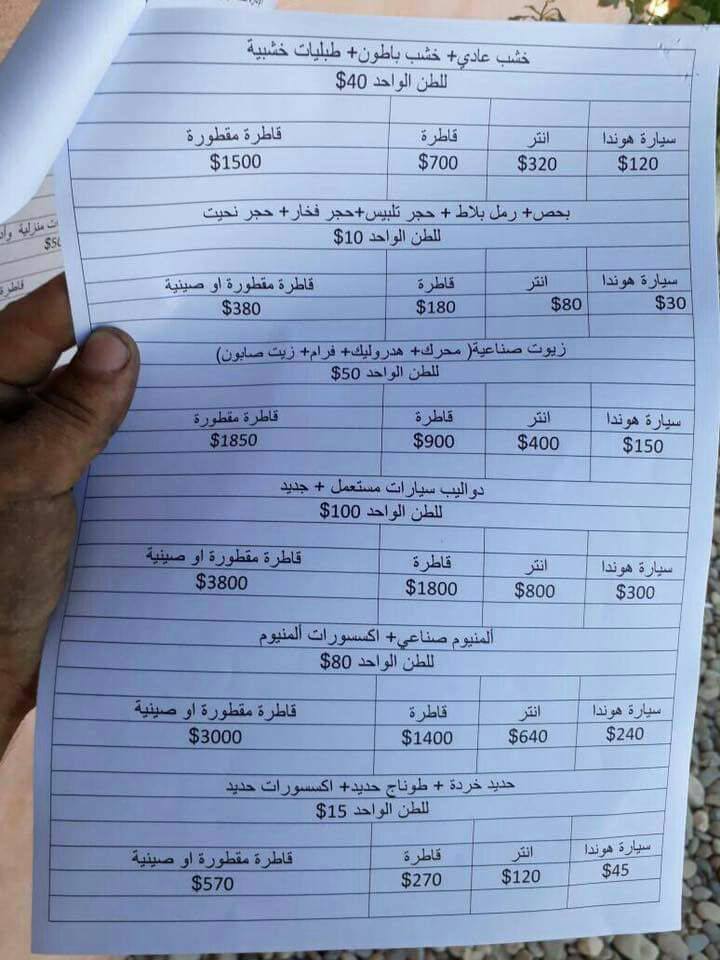 خشب عادي+ خشب باطون+ طبليات خشبية
للطن الواحد 40$
سيارة هوندا انتر قاطرة قاطرة مقطورة
$120 $320 $700 $1500
بحص+ رمل بلاط + حجر تلبيس+حجر فخار+ حجر نحيت
للطن الواحد 10$
سيارة هوندا انتر قاطرة قاطرة مقطورة او صينية
$30 $80 $180 $380
زيوت صناعية( محرك+ هدروليك+ فرام+ زيت صابون)
للطن الواحد 50$
سيارة هوندا انتر قاطرة قاطرة مقطورة
$150 $400 $900 $1850
دواليب سيارات مستعمل + جديد
للطن الواحد 100$
سيارة هوندا انتر قاطرة قاطرة مقطورة او صينية
$300 $800 $1800 $3800
ألمنيوم صناعي+ اكسسورات ألمنيوم
للطن الواحد 80$
سيارة هوندا انتر قاطرة قاطرة مقطورة او صينية
$240 $640 $1400 $3000
حديد خردة + طوناج حديد+ اكسسورات حديد
للطن الواحد 15$
سيارة هوندا انتر قاطرة قاطرة مقطورة او صينية
$45 $120 $270 $570
منزلية
قاطرة